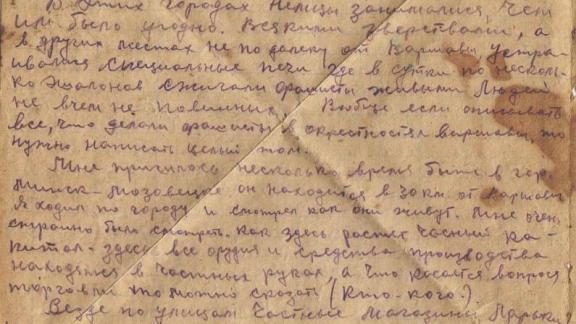 В этих городах немцы занимались, чем
им было угодно. Всякими зверствами, а
в других местах не по далеку от Варшавы устра-
ивались специальные печи где в сутки по несколь-
ко эшалонов сжигали фашисты живыми людей
не в чем не повинных. Вообще если описывать
все, что делали фашисты в окрестностях варшавы, то
нужно написать целый том.
Мне пришлось несколько время быть в гор.
Минск-Мозовецке он находится в 30 км. от варшавы
я ходил по городу и смотрел как они живут. Мне очень
странно было смотреть. как здесь растет частный ка-
питал - здесь все орудия и средства производства
находятся в частных руках, а что касается вопроса
торговли то можно сказать (Кто-кого).
Везде по улицам частные магазины Ларьки